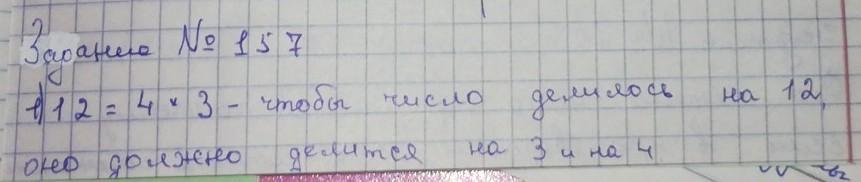 Задание № 157
1) 12 = 4 × 3 - чтобы число делилось на 12,
оно должно делится на 3 и на 4